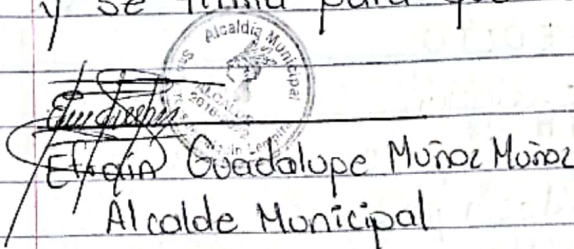 y se firma para que
Alcaldía Municipal
Efraín Guadalupe Muñoz Muñoz
Alcalde Municipal